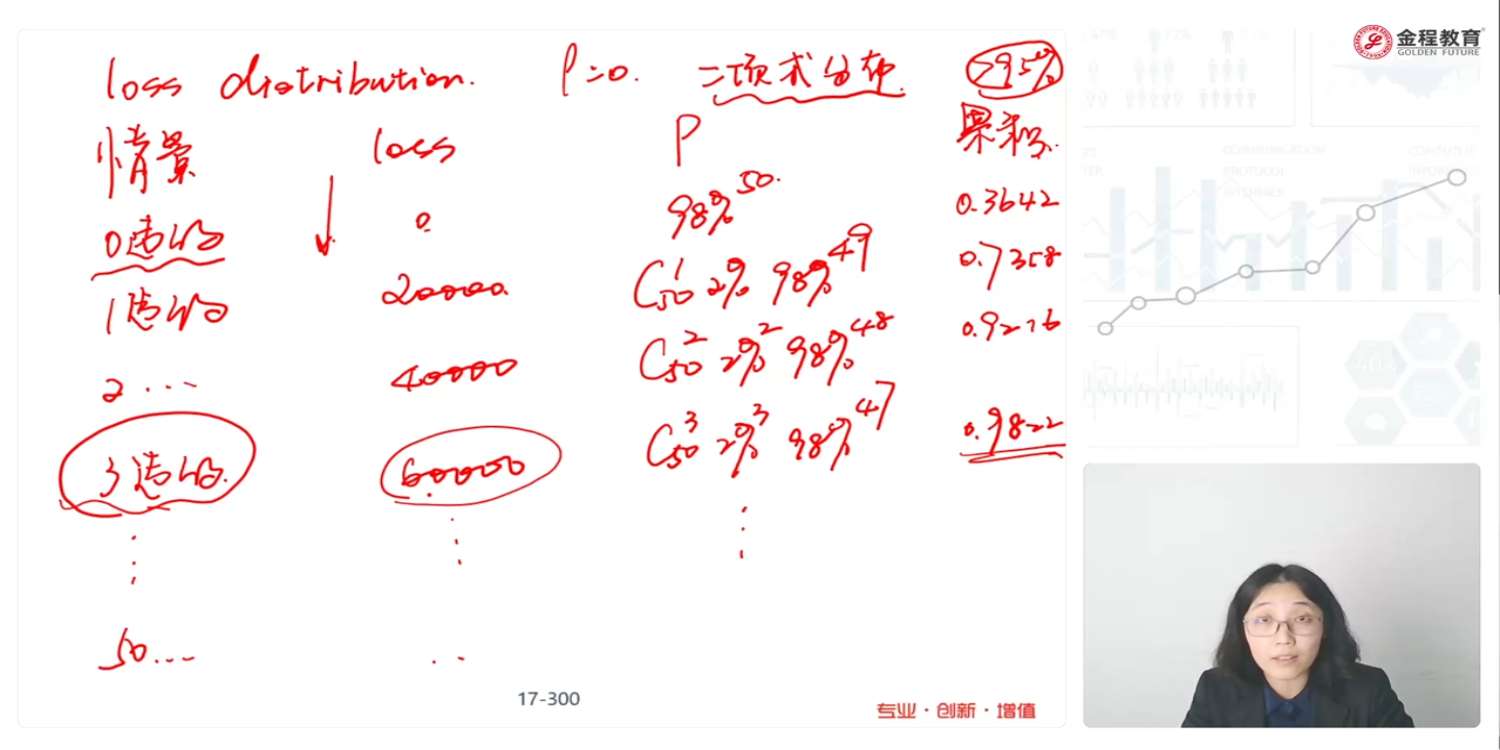 loss distribution. ρ=0. 二项式分布 >95%
情景 loss P 累积.
0违约 0 98%^50. 0.3642
1违约 20000. C₅₀¹ 2% 98%^49 0.7358
2... 40000 C₅₀² 2%² 98%^48 0.9216
3违约. 60000 C₅₀³ 2%³ 98%^47 0.9822
50... ..
17-300
专业·创新·增值
金程教育
GOLDEN FUTURE